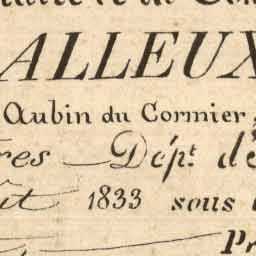 ALLEUX
Aubin du Cormier,
res Dépt. d'
ût 1833 sous
Pr